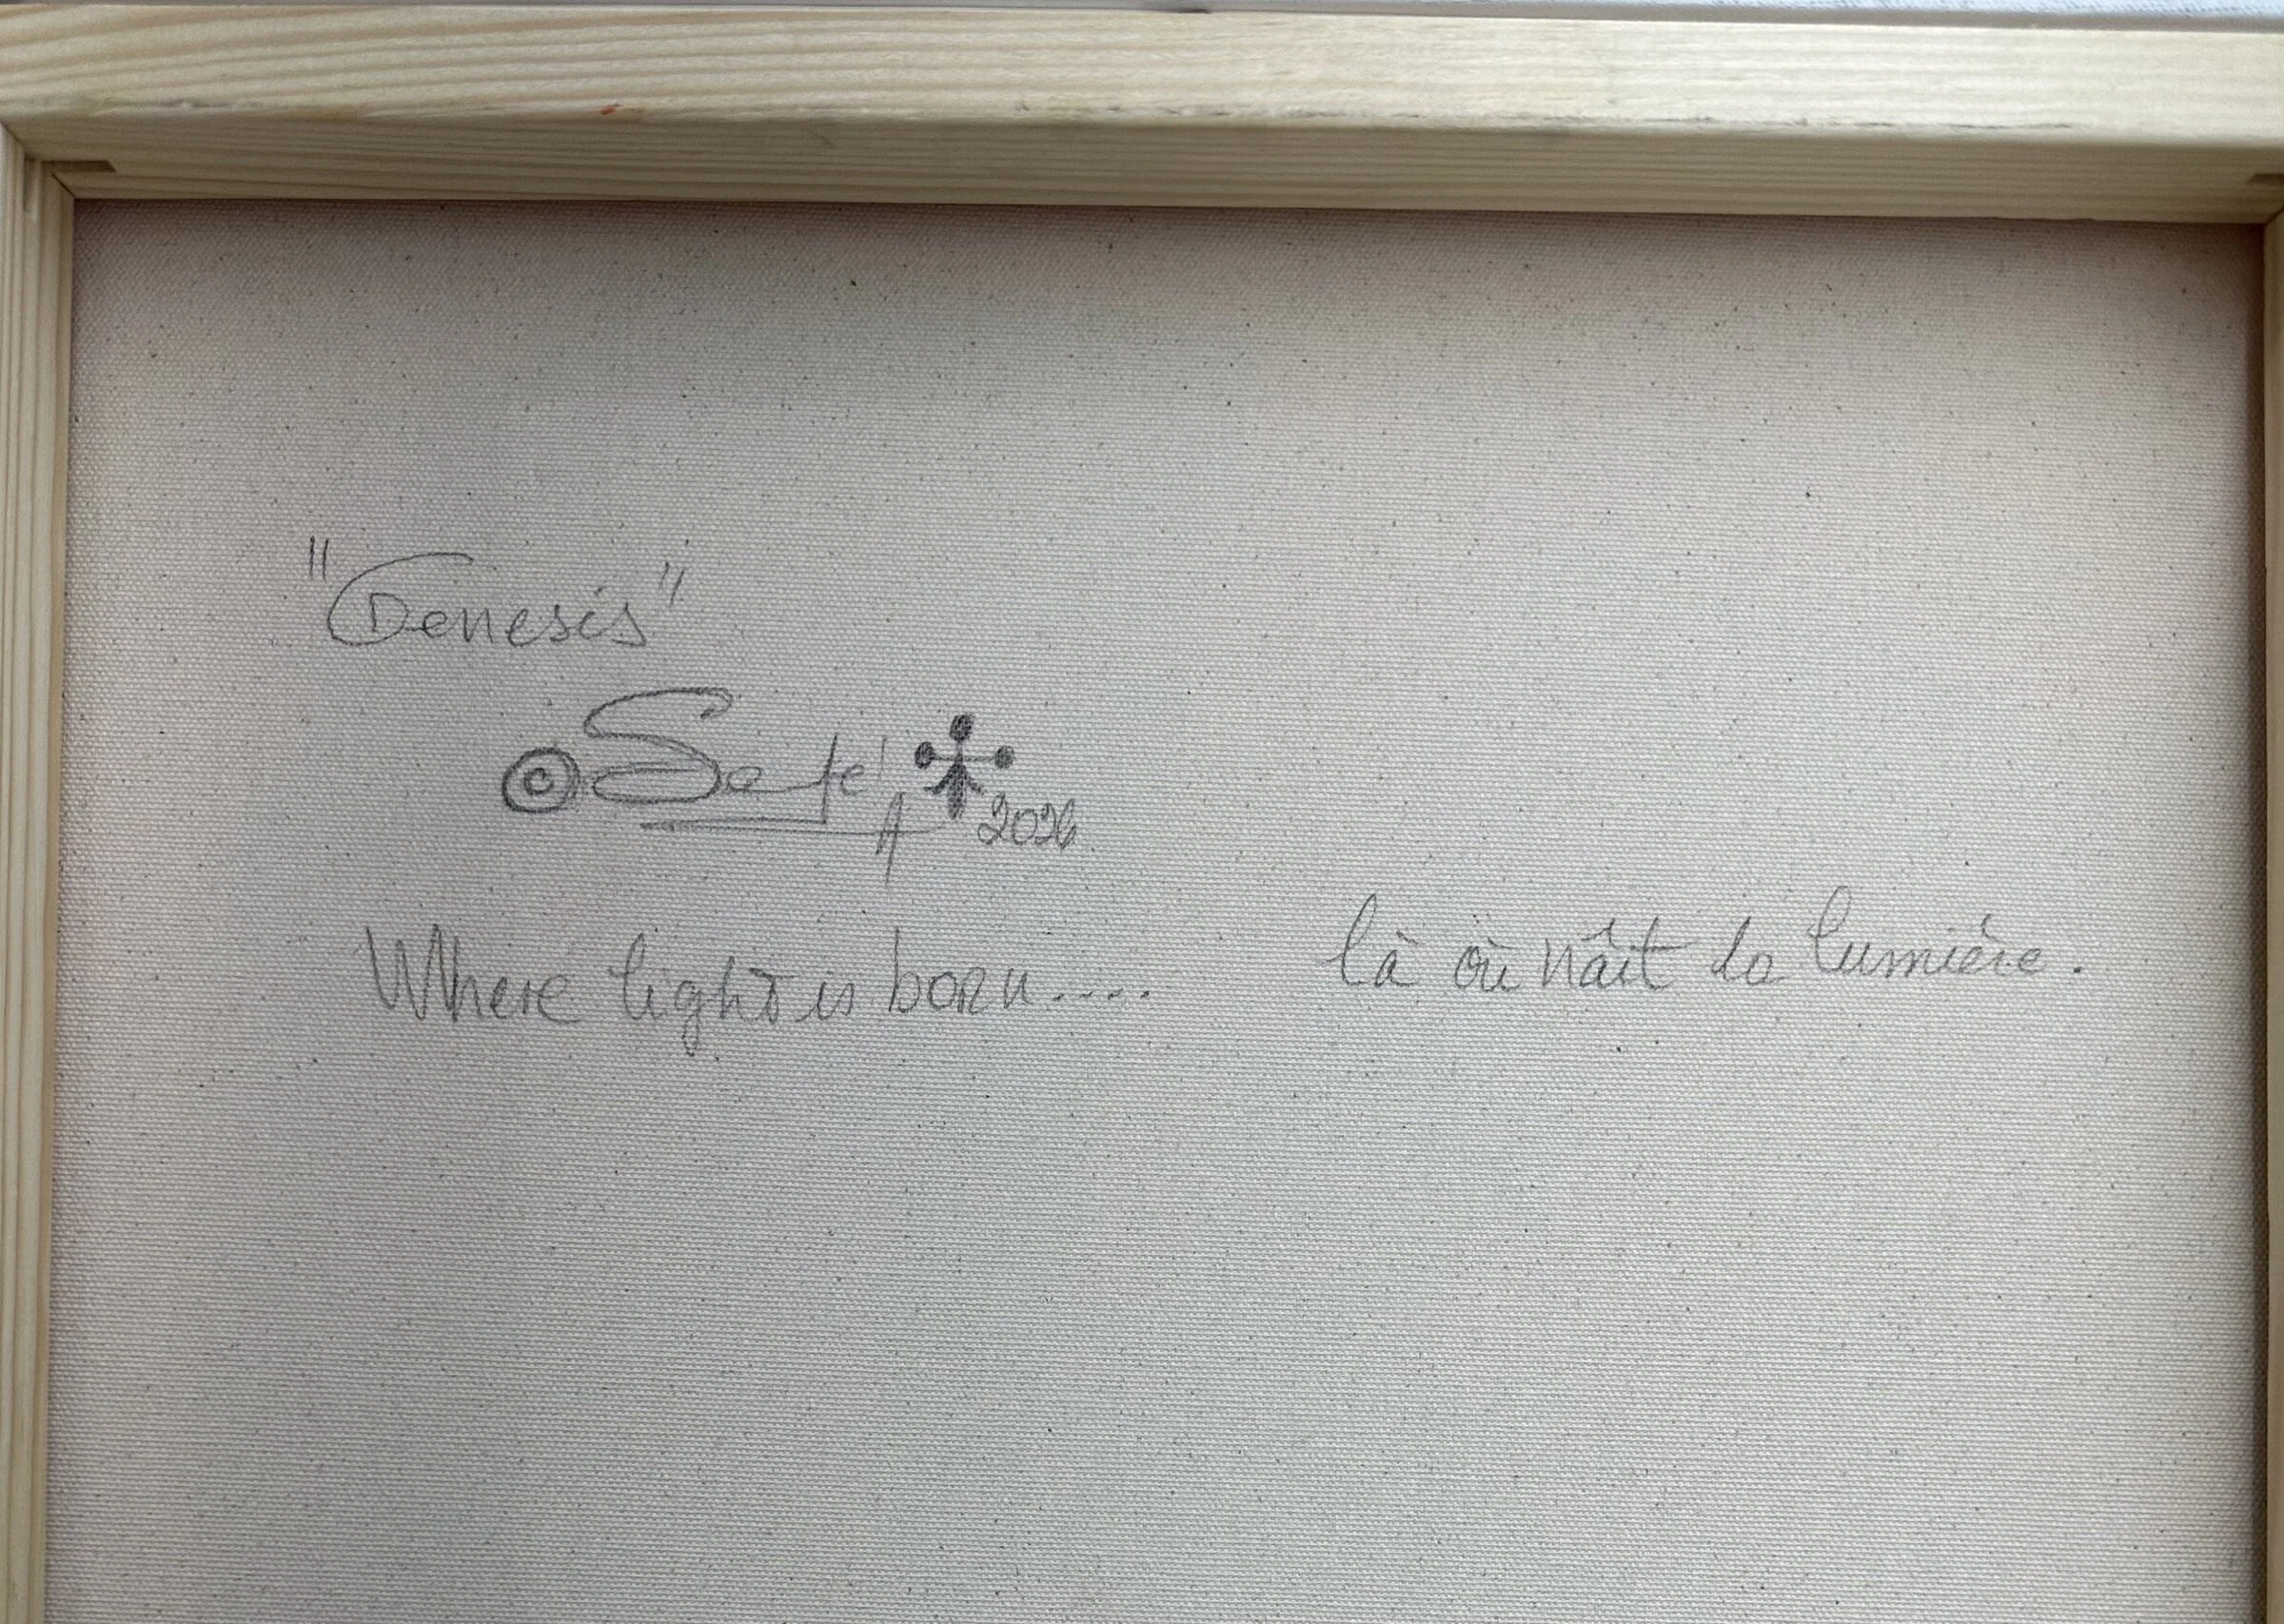 "Genesis"
© Safel A 2026
Where light is born.... là où naît la lumière.